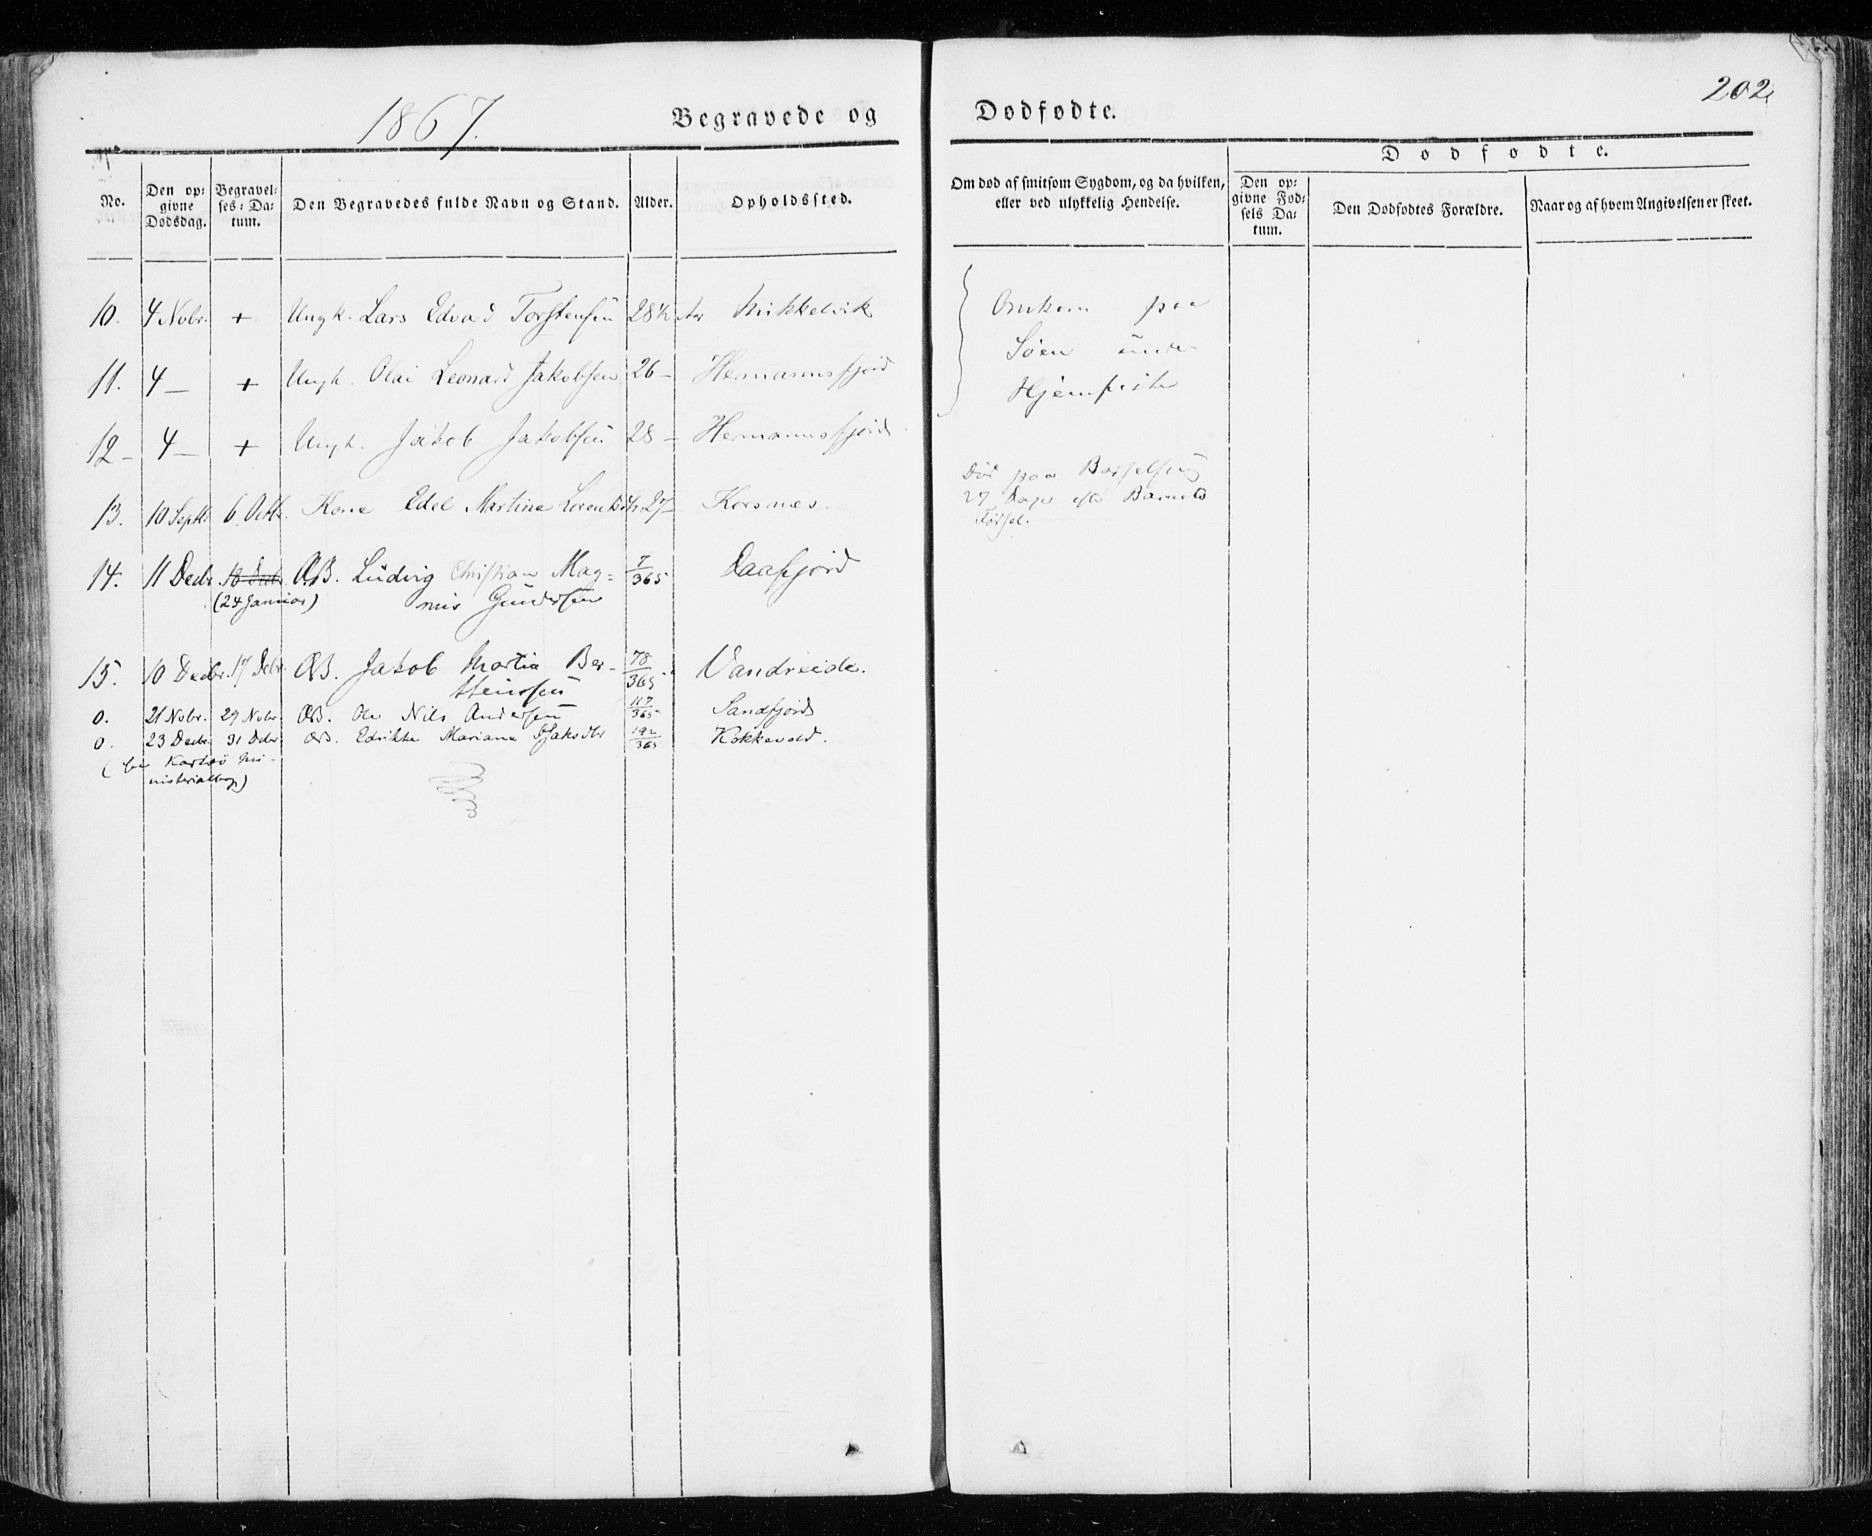 1867.
Begravede og Dødfødte.
202
Dødfødte.
No.
Den opgivne Dødsdag.
Begravelses-Datum.
Den Begravedes fulde Navn og Stand.
Alder.
Opholdssted.
Om død af smitsom Sygdom, og da hvilken, eller ved ulykkelig Hendelse.
Den opgivne Fødsels Datum.
Den Dødfødtes Forældre.
Naar og af hvem Angivelsen er skeet.
10. 4 Nobr. + Ungk. Lars Edvard Torstensen 28½ Aar Mikkelvik
Omkom paa
Søen under
11. 4 — + Ungk. Olai Leonard Jakobsen 26 — Hermannsfjord
Hjemreise
12 — 4 — + Ungk. Jakob Jakobsen 28 — Hermannsfjord
13. 10 Septr. 6. Octbr. Kone Edel Martina Lorentsdtr 27 — Korsnæs.
Død paa Barselseng
27 Dage efter Barnets
Fødsel.
14. 11 Decbr. ÆB. Ludvig Christian Mag- 7/365 Daafjord
(24 Januar) nus Gundersen
15. 10 Decbr. 17 Debr. ÆB. Jakob Martin Ber- 78/365 Vandreide.
0. 21 Nobr. 29 Nobr. ÆB. Ole Nils Andersen 117/365 Sandfjord
0. 23 Decbr. 31 Debr ÆB. Edrikke Mariane 192/365 Kokkevold.
(see Karlsø Mi-
nisterialbog)